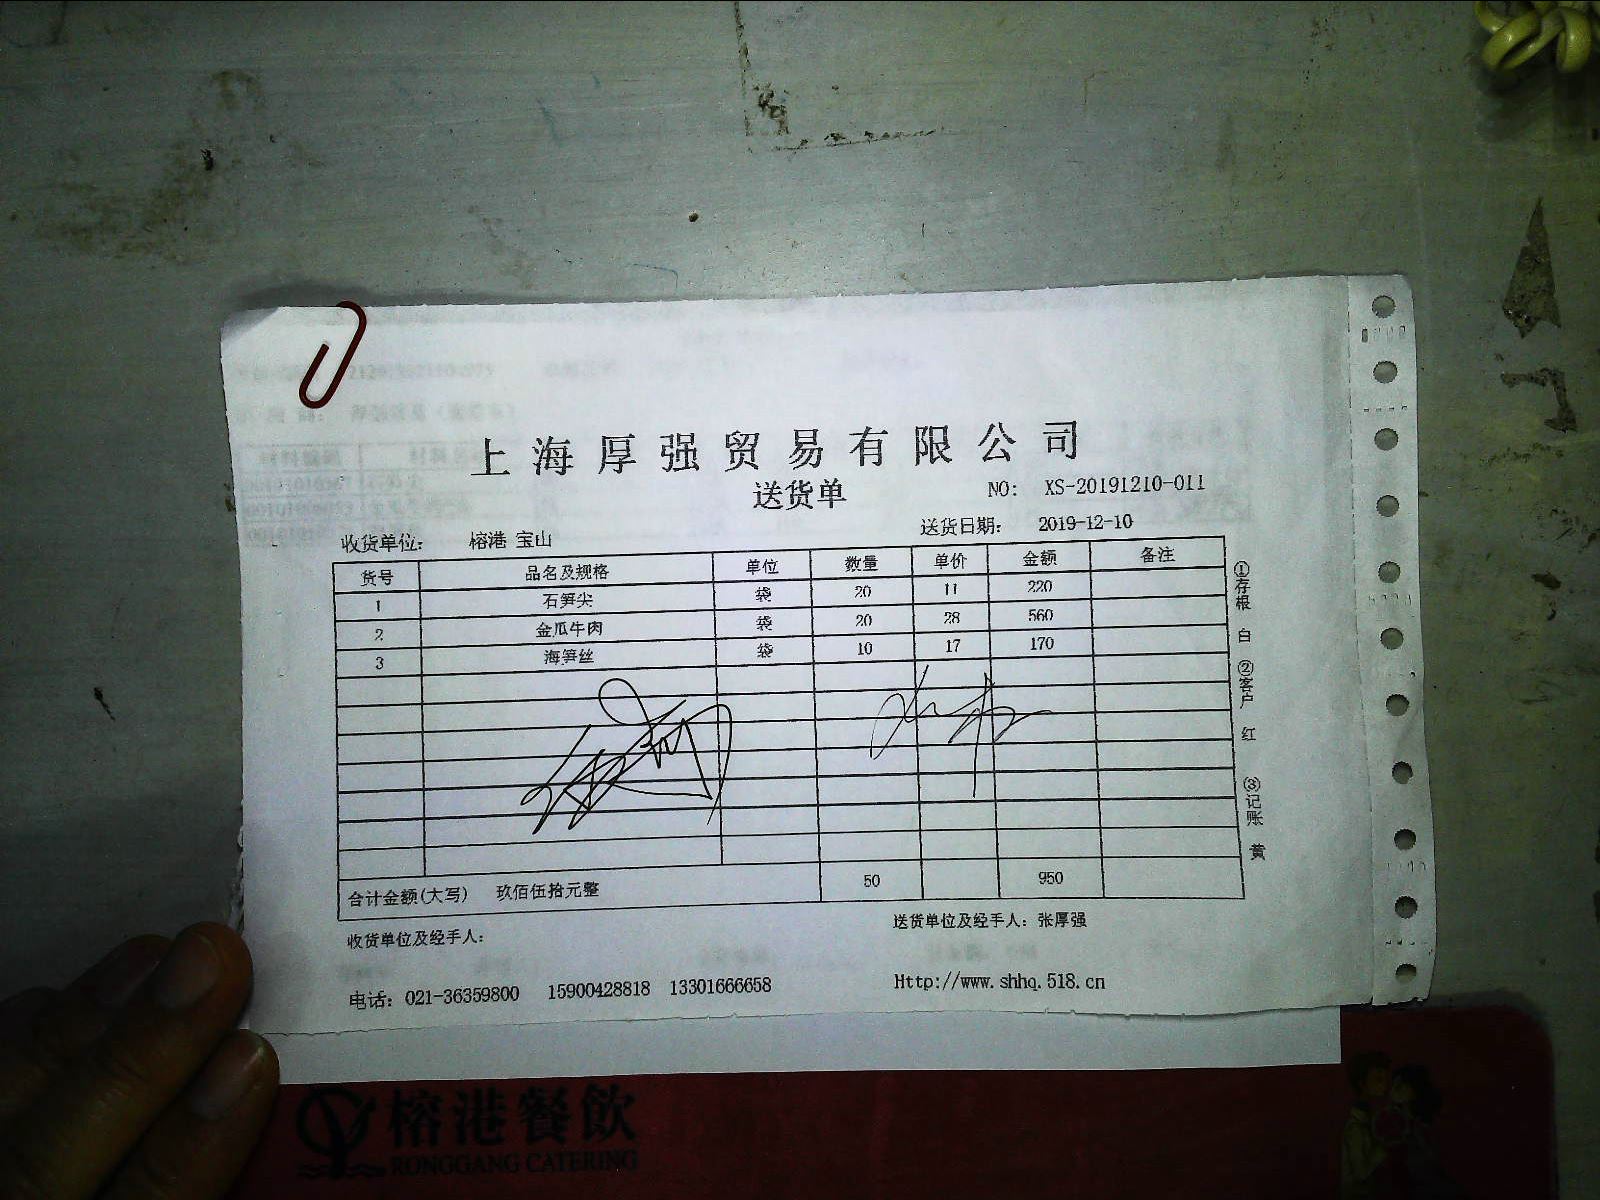 上海厚强贸易有限公司
送货单
NO: XS-20191210-011
收货单位: 榕港 宝山
送货日期: 2019-12-10
货号 品名及规格 单位 数量 单价 金额 备注
1 石笋尖 袋 20 11 220
2 金瓜牛肉 袋 20 28 560
3 海笋丝 袋 10 17 170
合计金额(大写) 玖佰伍拾元整 50 950
收货单位及经手人:
送货单位及经手人: 张厚强
电话: 021-36359800 15900428818 13301666658
Http://www.shhq.518.cn
①存根 白 ②客户 红 ③记账 黄
榕港餐飲
RONGGANG CATERING